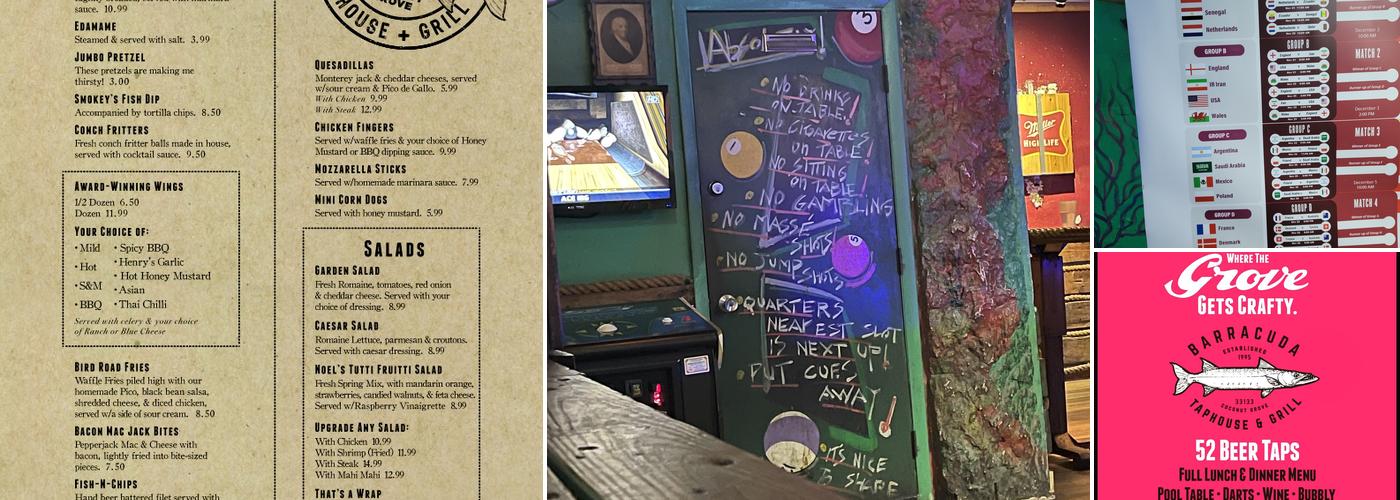 sauce. 10.99
Edamame
Steamed & served with salt. 3.99
Jumbo Pretzel
These pretzels are making me
thirsty! 3.00
Smokey's Fish Dip
Accompanied by tortilla chips. 8.50
Conch Fritters
Fresh conch fritter balls made in house,
served with cocktail sauce. 9.50
Award-Winning Wings
1/2 Dozen 6.50
Dozen 11.99
Your Choice of:
• Mild
• Hot
• S&M
• BBQ
• Spicy BBQ
• Henry's Garlic
• Hot Honey Mustard
• Asian
• Thai Chilli
Served with celery & your choice
of Ranch or Blue Cheese
Bird Road Fries
Waffle Fries piled high with our
homemade Pico, black bean salsa,
shredded cheese, & diced chicken,
served w/a side of sour cream. 8.50
Bacon Mac Jack Bites
Pepperjack Mac & Cheese with
bacon, lightly fried into bite-sized
pieces. 7.50
Fish-N-Chips
Hand beer battered filet served with
GROVE
HOUSE + GRILL
Quesadillas
Monterey jack & cheddar cheeses, served
w/sour cream & Pico de Gallo. 5.99
With Chicken 9.99
With Steak 12.99
Chicken Fingers
Served w/waffle fries & your choice of Honey
Mustard or BBQ dipping sauce. 9.99
Mozzarella Sticks
Served w/homemade marinara sauce. 7.99
Mini Corn Dogs
Served with honey mustard. 5.99
Salads
Garden Salad
Fresh Romaine, tomatoes, red onion
& cheddar cheese. Served with your
choice of dressing. 8.99
Caesar Salad
Romaine Lettuce, parmesan & croutons.
Served with caesar dressing. 8.99
Noel's Tutti Fruitti Salad
Fresh Spring Mix, with mandarin orange,
strawberries, candied walnuts, & feta cheese.
Served w/Raspberry Vinaigrette 8.99
Upgrade Any Salad:
With Chicken 10.99
With Shrimp (Fried) 11.99
With Steak 14.99
With Mahi Mahi 12.99
That's a Wrap
NO DRINKS
ON TABLE!
NO CIGARETTES
ON TABLE!
NO SITTING
ON TABLE!
NO GAMBLING
NO MASSE
SHOTS
NO JUMP
SHOTS
QUARTERS
NEAREST SLOT
IS NEXT UP!
PUT CUES
AWAY!
ITS NICE
HD
1
3
5
Miller
HIGH LIFE
Senegal
Netherlands
GROUP B
England
IR Iran
USA
Wales
GROUP C
Argentina
Saudi Arabia
Mexico
Poland
GROUP D
France
Denmark
GROUP B
GROUP C
GROUP D
MATCH 2
MATCH 3
MATCH 4
WHERE THE
Grove
GETS CRAFTY.
BARRACUDA
ESTABLISHED
1995
33133
COCONUT GROVE
TAPHOUSE & GRILL
52 BEER TAPS
FULL LUNCH & DINNER MENU
POOL TABLE • DARTS • WINE • BUBBLY